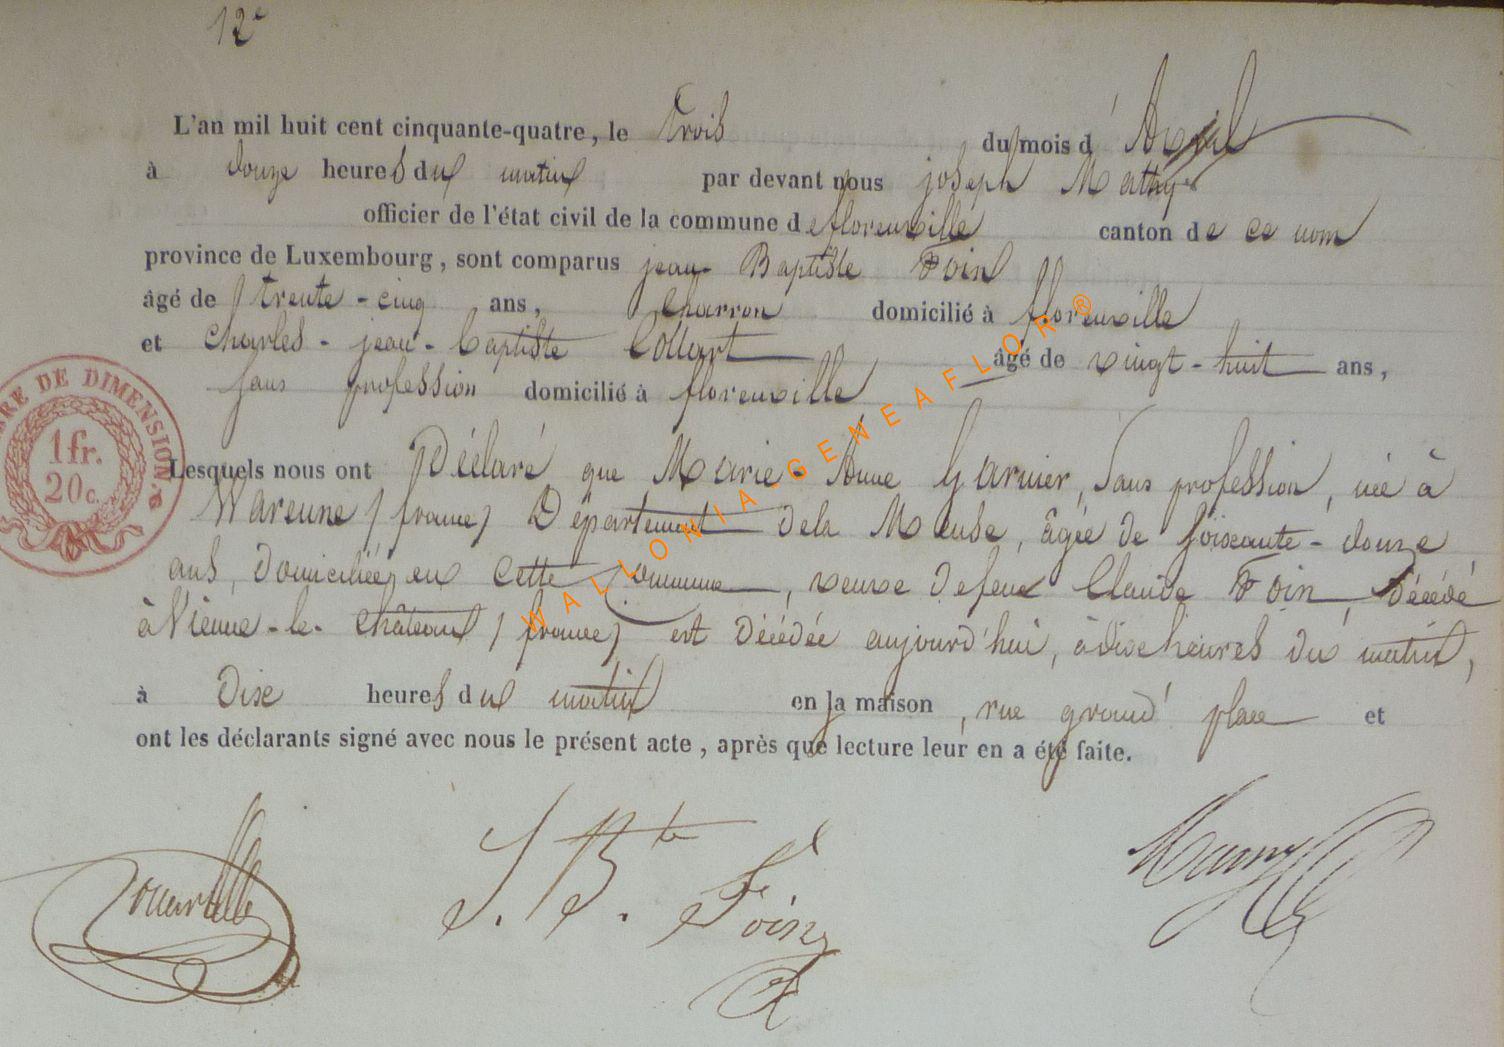 12e
L'an mil huit cent cinquante-quatre, le Trois du mois d'Avril
à douze heures du matin par devant nous joseph Mathy
officier de l'état civil de la commune de florenville canton de ce nom
province de Luxembourg, sont comparus jean Baptiste Foin
âgé de trente-cinq ans, Charron domicilié à florenville
et Charles-jean-baptiste Collart âgé de vingt-huit ans,
sans profession domicilié à florenville
TIMBRE DE DIMENSION
1 fr.
20 c.
Lesquels nous ont Déclaré que Marie-Anne Garnier, Sans profession, née à
Warenne (france) Département dela Meuse, âgée de soixante-douze
ans, Domiciliée, en cette Commune, veuve defeu Claude Foin, Décédé
à Vienne-le-château (france) est Décédée aujourd'hui, àdix heures du matin,
à Dix heures du matin en la maison, rue grand' place et
ont les déclarants signé avec nous le présent acte, après que lecture leur en a été faite.
J. Bte Foin
WALLONIA-GENEAFLOR®